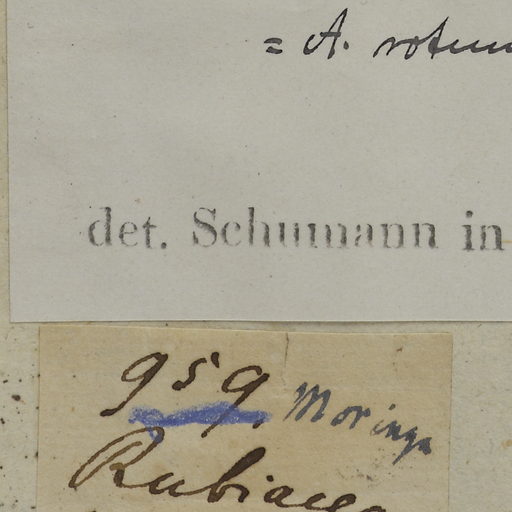 = A. rotun
det. Schumann in
959. Moringa
Rubiacea